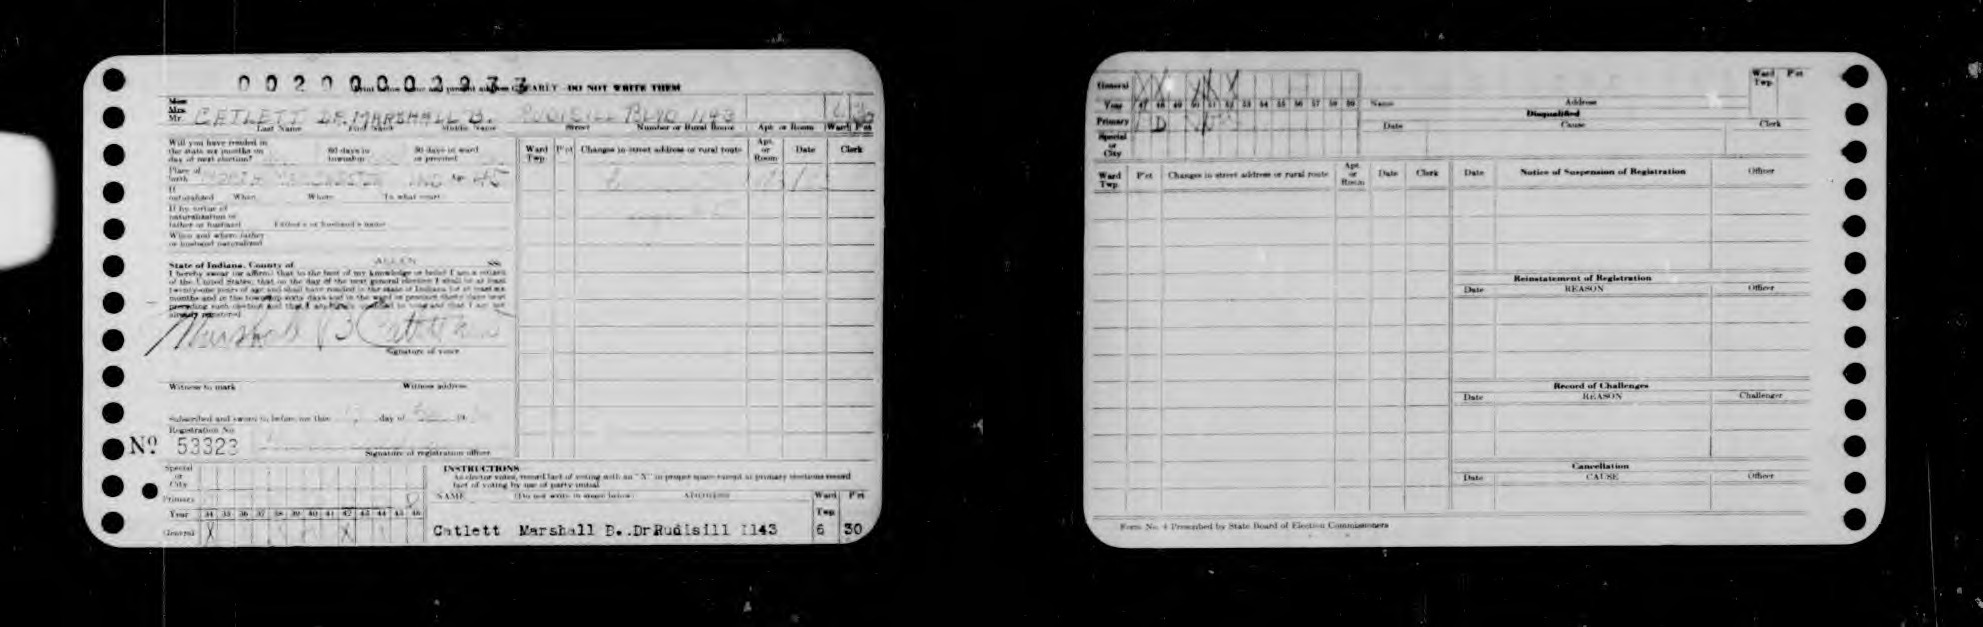 0020000397
PRINT
CLEARLY—DO NOT WRITE THEM
Miss
Mrs.
Mr. CATLETT DR. MARSHALL B. RUDISILL BLVD 1143 6 30
Last Name First Name Middle Name Street Number or Rural Route Apt. or Room Ward P'ct
Will you have resided in
the state six months on
day of next election?
60 days in
township
30 days in ward
or precinct
Ward
Twp.
P'ct
Changes in street address or rural route
Apt.
or
Room
Date
Clerk
Place of
birth NORTH MANCHESTER IND Age 45
If
naturalized When Where In what court
If by virtue of
naturalization of
father or husband Father's or husband's name
When and where father
or husband naturalized
State of Indiana, County of ALLEN SS.
I hereby swear (or affirm) that to the best of my knowledge or belief I am a citizen
of the United States; that on the day of the next general election I shall be at least
twenty-one years of age and shall have resided in the state of Indiana for at least six
months and in the township sixty days and in the ward or precinct thirty days next
preceding such election and that I am
and that I am not
already registered
Marshall B Catlett
Signature of voter
Witness to mark Witness address
Subscribed and sworn to before me this day of 19
Registration No.
No. 53323
Signature of registration officer
Special
or
City
Primary D
Year 34 35 36 37 38 39 40 41 42 43 44 45 46
General X X
INSTRUCTIONS
As elector votes, record fact of voting with an "X" in proper space except at primary elections record
fact of voting by use of party initial.
NAME (Do not write in space below) ADDRESS Ward
Twp. P'ct
Catlett Marshall B..Dr Rudisill 1143 6 30
General X X X X X
Year 47 48 49 50 51 52 53 54 55 56 57 58 59
Primary D
Special
or
City
Name Address
Ward
Twp.
P'ct
Disqualified
Date Cause Clerk
Ward
Twp.
P'ct
Changes in street address or rural route
Apt.
or
Room
Date
Clerk
Date Notice of Suspension of Registration Officer
Reinstatement of Registration
Date REASON Officer
Record of Challenges
Date REASON Challenger
Cancellation
Date CAUSE Officer
Form No. 4 Prescribed by State Board of Election Commissioners